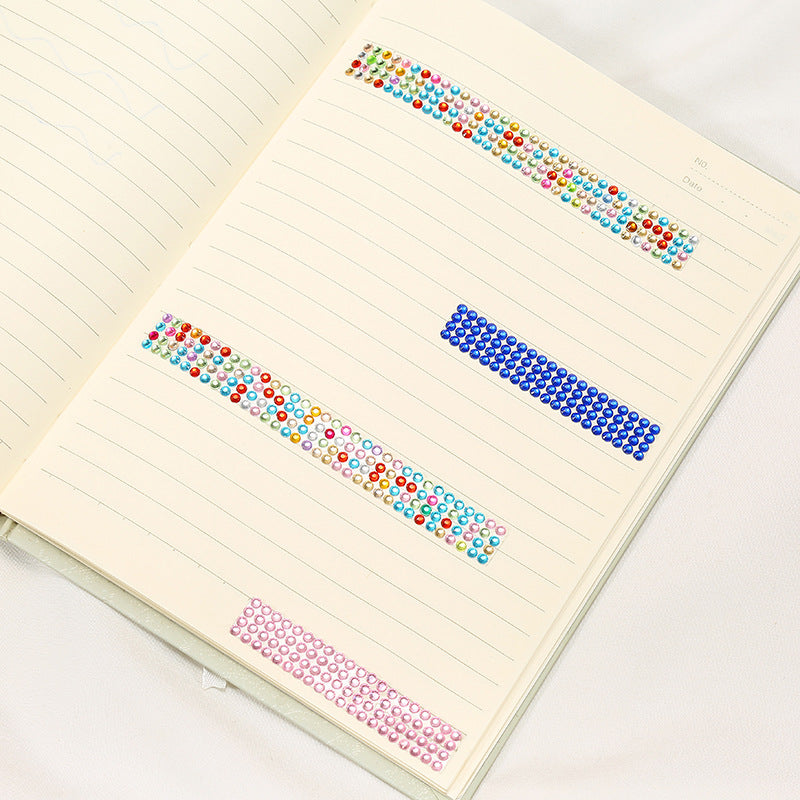 NO.
Date